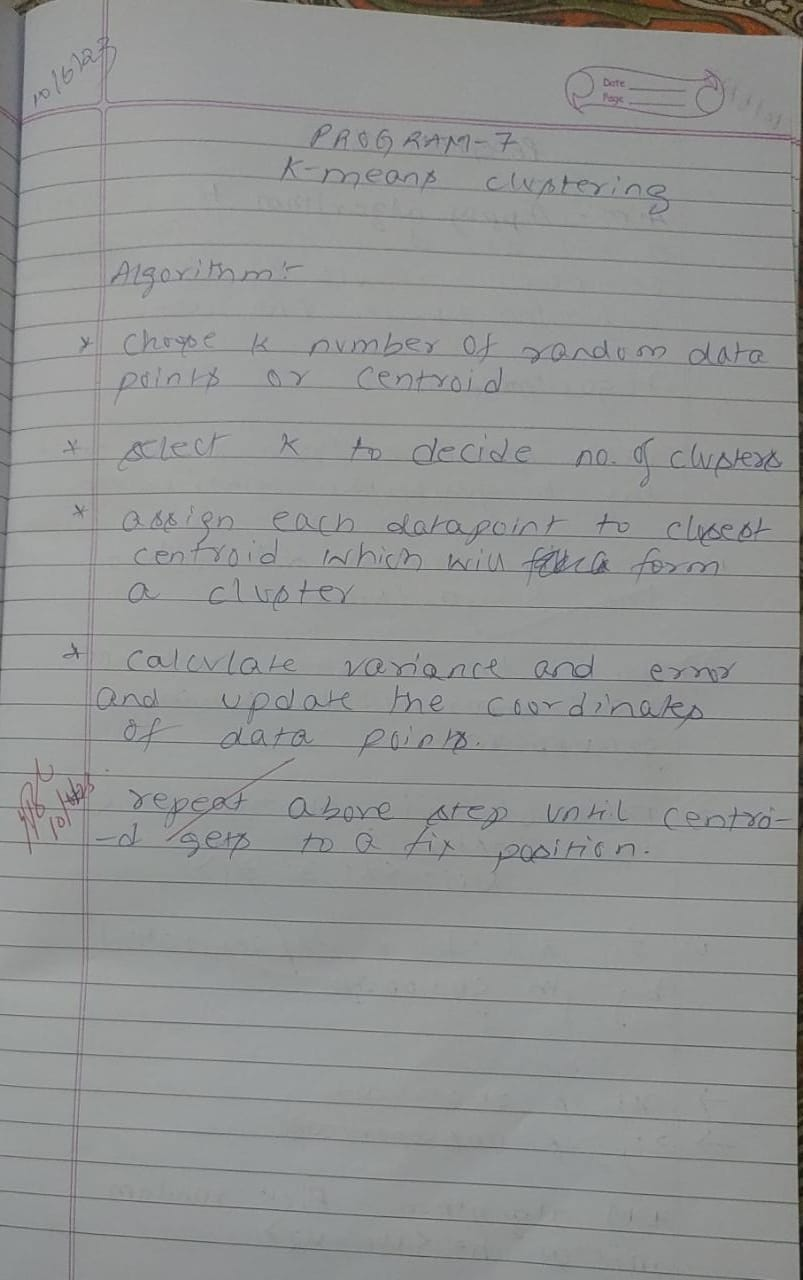 10/6/23
Date
Page
PROGRAM-7
K-means clustering
Algorithm:-
* choose k number of random data
points or centroid
* select k to decide no. of clusters
* assign each datapoint to closest
centroid which will form
a cluster
* calculate variance and error
and update the coordinates
of data points.
repeat above step until centroi-
-d gets to a fix position.
10/6/23